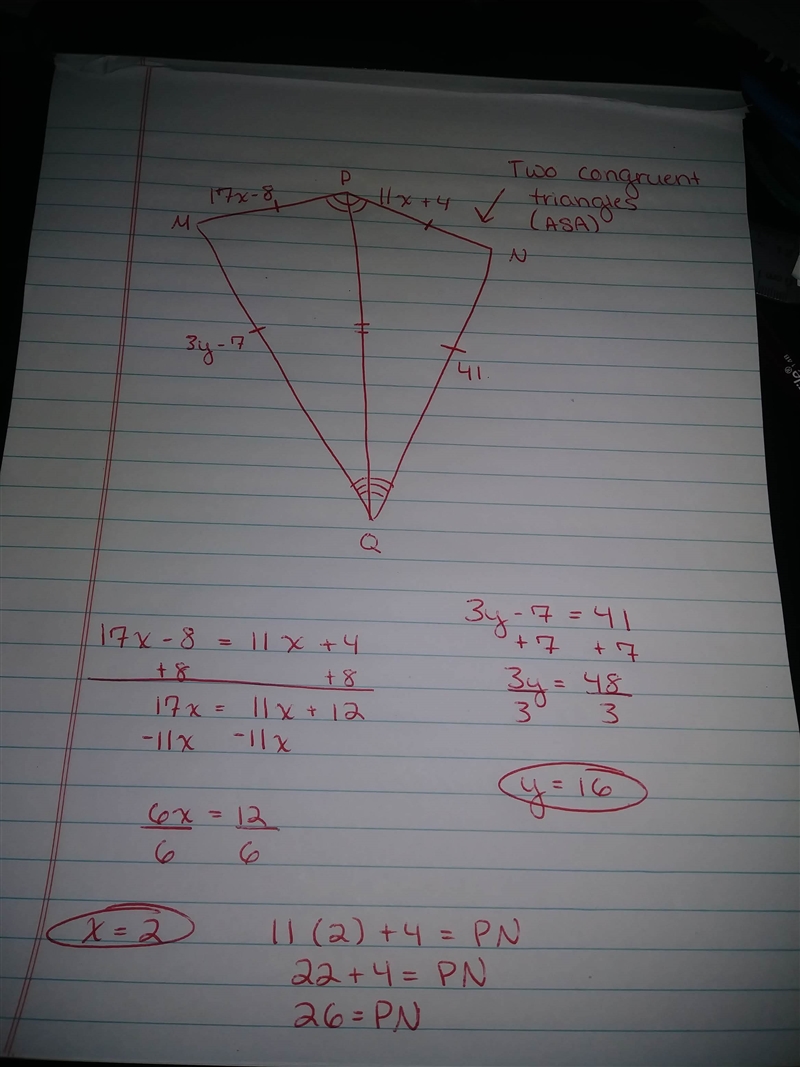 Two congruent
triangles
(ASA)
P
17x-8
11x+4
M
N
3y-7
41
Q
17x - 8 = 11x + 4
+8 +8
17x = 11x + 12
-11x -11x
6x = 12
6 6
x = 2
3y - 7 = 41
+7 +7
3y = 48
3 3
y = 16
11(2) + 4 = PN
22 + 4 = PN
26 = PN